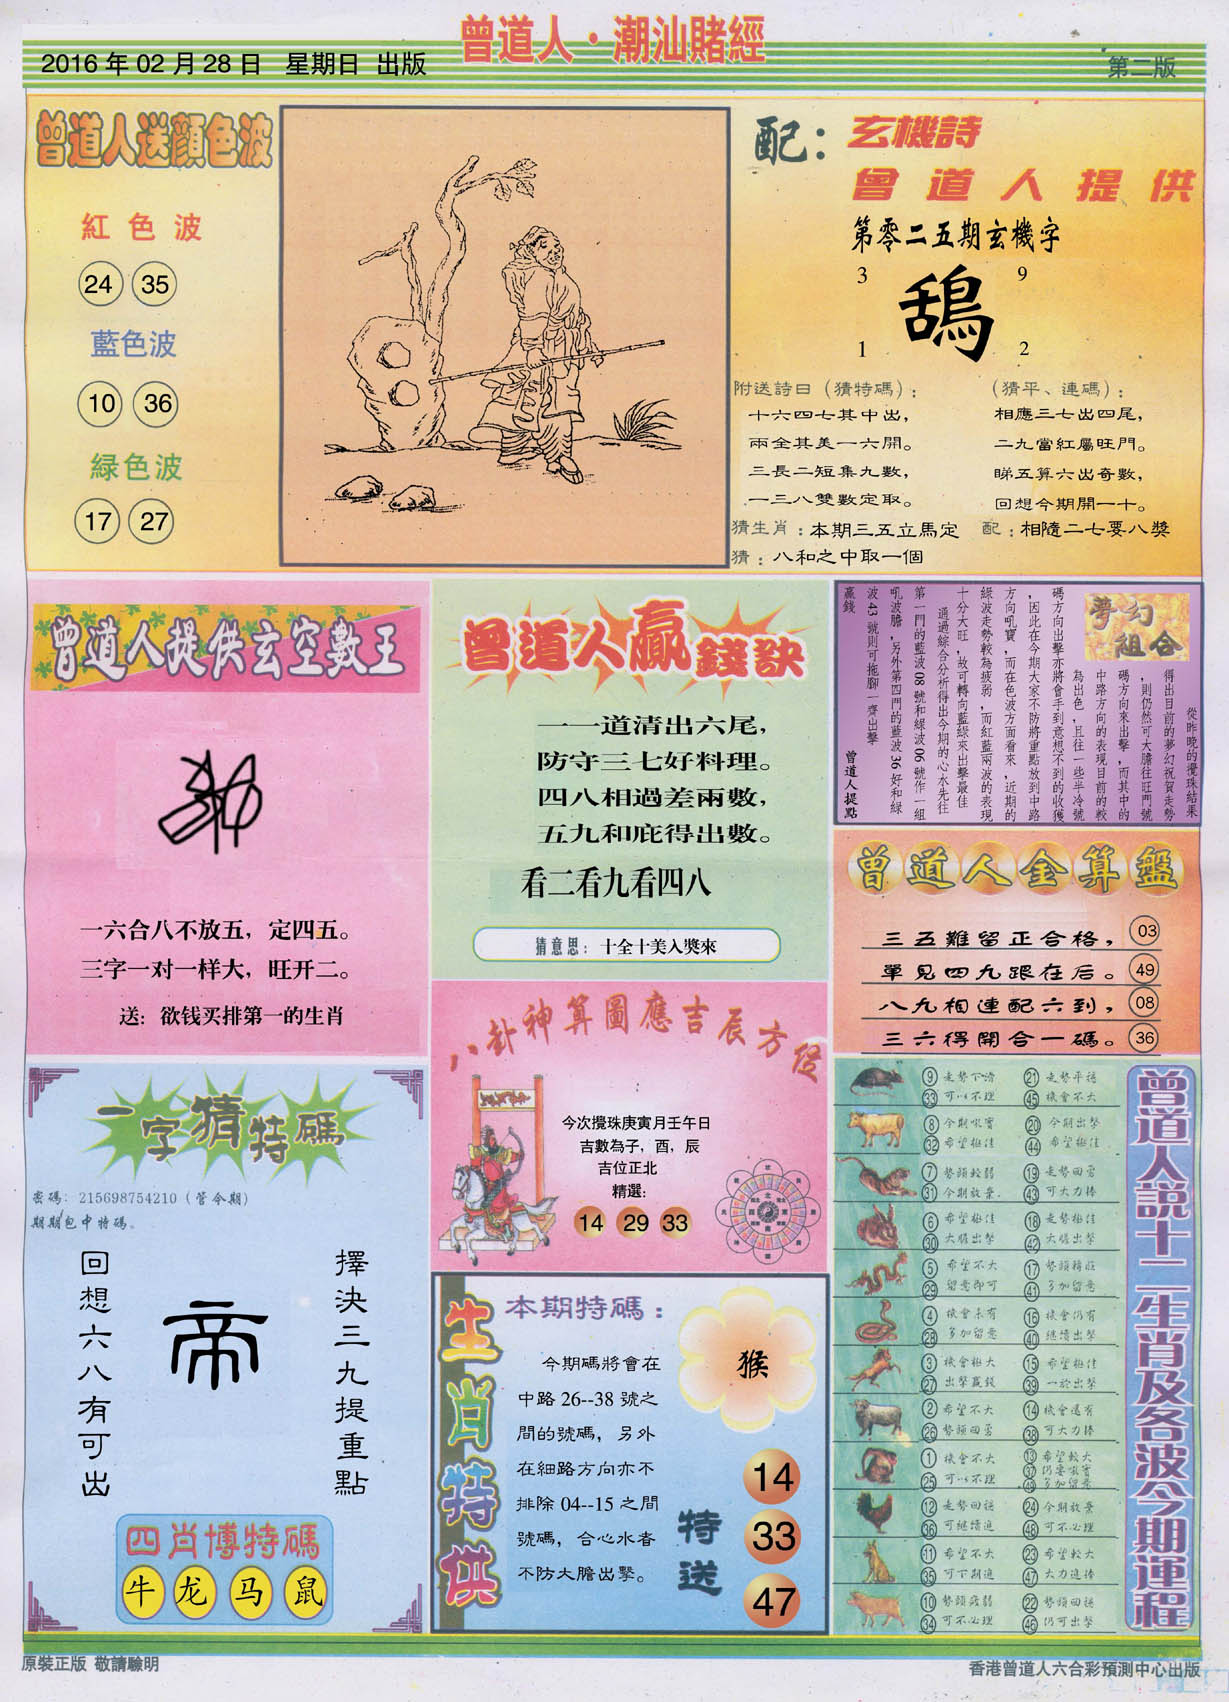 曾道人·潮汕賭經
2016 年 02 月 28 日 星期日 出版
第二版
曾道人送顏色波
紅色波
24 35
藍色波
10 36
緑色波
17 27
配：玄機詩
曾道人提供
第零二五期玄機字
3 9
鴰
1 2
附送詩曰（猜特碼）：
十六四七其中出，
兩全其美一六開。
三長二短集九數，
一三八雙數定取。
（猜平、連碼）：
相應三七出四尾，
二九當紅屬旺門。
睇五算六出奇數，
回想今期開一十。
猜生肖：本期三五立馬定 配：相隨二七要八獎
猜：八和之中取一個
曾道人提供玄空數王
一六合八不放五，定四五。
三字一对一样大，旺开二。
送：欲钱买排第一的生肖
曾道人贏錢訣
一一道清出六尾，
防守三七好料理。
四八相過差兩數，
五九和庇得出數。
看二看九看四八
猜意思：十全十美入獎來
夢幻組合
從昨晚的攪珠結果
得出目前的夢幻祝賀走勢
，則仍然可大膽往旺門號
碼方向來出擊，而其中的
中路方向的表現目前的較
為出色，且往一些半冷號
碼方向出擊亦將會手到意想不到的收獲
，因此在今期大家不防將重點放到中路
方向吼寶，而在色波方面看來，近期的
綠波走勢較為疲弱，而紅藍兩波的表現
十分大旺，故可轉向藍綠來出擊最佳
通過綜合分析得出今期的心水先往
第一門的藍波 08 號和綠波 06 號作一組
吼波膽，另外第四門的藍波 36 好和綠
波 43 號則可拖腳一齊出擊
贏錢
曾道人提點
曾道人金算盤
三五難留正合格， 03
單見四九跟在后。 49
八九相連配六到， 08
三六得開合一碼。 36
八卦神算圖應吉辰方位
今次攪珠庚寅月壬午日
吉數為子，酉，辰
吉位正北
精選：
14 29 33
一字猜特碼
密碼：215698754210（管今期）
期期包中特碼。
擇決三九提重點
帝
回想六八有可出
四肖博特碼
牛 龙 马 鼠
生肖特供
本期特碼：
今期碼將會在
中路 26--38 號之
間的號碼，另外
在細路方向亦不
排除 04--15 之間
號碼，合心水者
不防大膽出擊。
猴
特送
14
33
47
曾道人說十二生肖及各波今期運程
⑨ 走勢下滑 ㉑ 走勢平穩
㉝ 可以不理 ㊺ 機會不大
⑧ 今期吼實 ⑳ 今期出擊
㉜ 希望極佳 ㊹ 希望極佳
⑦ 勢頭較弱 ⑲ 走勢回勇
㉛ 今期放棄 ㊸ 可大力捧
⑥ 希望極佳 ⑱ 走勢極佳
㉚ 大膽出擊 ㊷ 大膽出擊
⑤ 希望不大 ⑰ 勢頭轉旺
㉙ 留意即可 ㊶ 多加留意
④ 機會未有 ⑯ 機會仍有
㉘ 多加留意 ㊵ 繼續出擊
③ 機會極大 ⑮ 希望極佳
㉗ 出擊贏錢 ㊴ 一於出擊
② 希望不大 ⑭ 機會還有
㉖ 勢頭回勇 ㊳ 可大力捧
① 機會不大 ⑬ 希望較大
㉕ 可以不理 ㊲ 仍要吼實
㊾ 多加留意
⑫ 走勢回穩 ㉔ 今期放棄
㊱ 可繼續進 ㊽ 可不必理
⑪ 希望不大 ㉓ 希望較大
㉟ 可下期進 ㊼ 大力追捧
⑩ 勢頭疲弱 ㉒ 勢頭回穩
㉞ 可不必理 ㊻ 仍可出擊
原裝正版 敬請驗明
香港曾道人六合彩預測中心出版